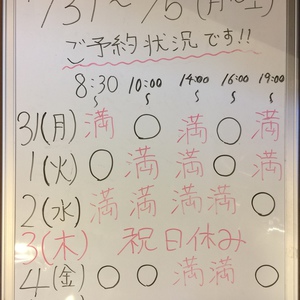 /31～/5(月～土)
ご予約状況です!!
8:30～ 10:00～ 14:00～ 16:00～ 19:00～
31(月) 満 ○ 満 ○ 満
1(火) ○ 満 満 ○ 満
2(水) 満 満 満 満 ○
3(木) 祝日休み
4(金) ○ ○ 満 満 ○